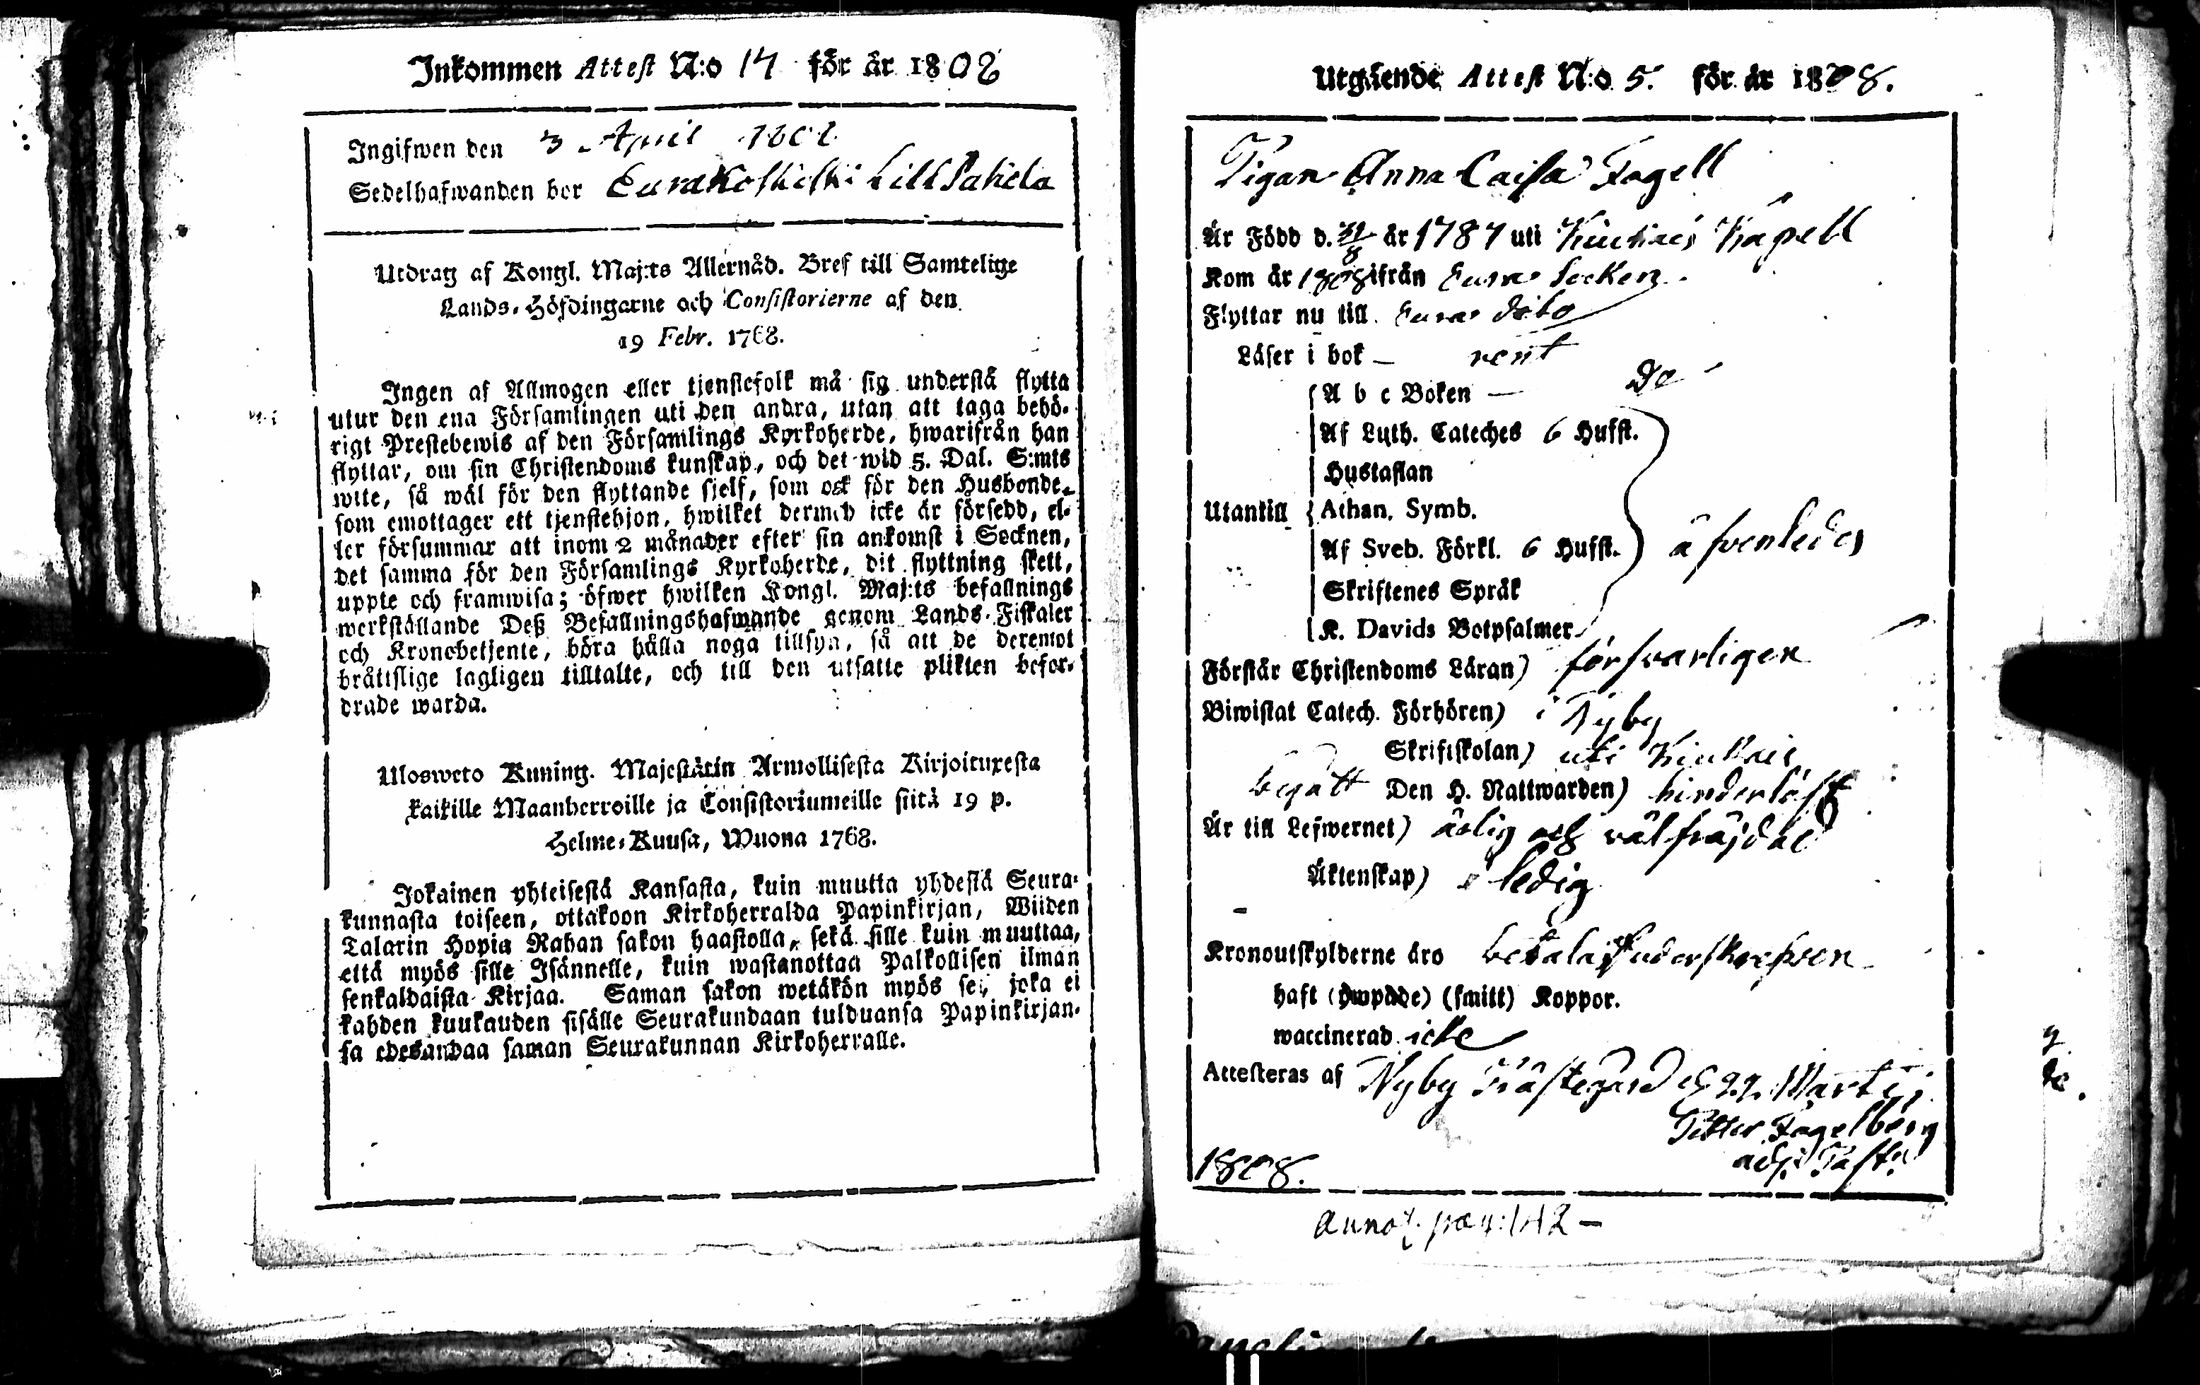 Inkommen Attest N:o 14 för år 1808
Ingifwen den 3 April 1808
Sedelhafwanden bor Eurakoski Lill Pahela
Utdrag af Kongl. Maj:ts Allernåd. Bref till Samtelige
Lands-Höfdingarne och Consistorierne af den
19 Febr. 1768.
Ingen af Allmogen eller tjenstefolk må sig understå flytta
utur den ena Församlingen uti den andra, utan att taga behö-
rigt Prestebewis af den Församlings Kyrkoherde, hwarifrån han
flyttar, om sin Christendoms kunskap, och det wid 5. Dal. S:mts
wite, så wäl för den flyttande sjelf, som ock för den Husbonde,
som emottager ett tjenstehjon, hwilket dermed icke är försedd, el-
ler försummar att inom 2 månader efter sin ankomst i Socknen,
det samma för den Församlings Kyrkoherde, dit flyttning skett,
uppte och framwisa; öfwer hwilken Kongl. Maj:ts befallnings
werkställande Deß Befallningshafwande genom Lands-Fiskaler
och Kronobetjente, böra hålla noga tillsyn, så att de deremot
bråttslige lagligen tilltalte, och till den utsatte plikten befor-
drade warda.
Ulosweto Kuning. Majestätin Armollisesta Kirjoituxesta
kaikille Maanherroille ja Consistoriumeille siitä 19 p.
Helme-Kuusa, Wuona 1768.
Jokainen yhteisestä Kansasta, kuin muutta yhdestä Seura-
kunnasta toiseen, ottakoon Kirkoherralda Papinkirjan, Wiiden
Talarin Hopia Rahan sakon haastolla, sekä sille kuin muuttaa,
että myös sille Isännelle, kuin wastanottaa Palkollisen ilman
senkaldaista Kirjaa. Saman sakon wetäkön myös se, joka ei
kahden kuukauden sisälle Seurakundaan tulduansa Papinkirjan-
sa edesandaa saman Seurakunnan Kirkoherralle.
Utgående Attest N:o 5. för år 1808.
Pigan Anna Caisa Fagell
Är Född d. 31/8 år 1787 uti Kiukais Kapell
Kom år 1808 ifrån Eura Socken
Flyttar nu till Eura dito
Läser i bok — rent
A b c Boken — do
Af Luth. Cateches 6 Hufst.
Hustaflan
Utantill Athan. Symb.
Af Sveb. Förkl. 6 Hufst. äfvenledes
Skriftenes Språk
K. Davids Botpsalmer
Förstår Christendoms Läran) försvarligen
Biwistat Catech. Förhören) i Nyby
Skriftskolan) uti Kiukais
begått Den H. Nattwarden) hinderlöst
Är till Lefwernet) ärlig och välfräjdad
Äktenskap) ledig
Kronoutskylderne äro betalas
haft (ympade) (smitt) Koppor.
waccinerad icke
Attesteras af Nyby Prästegård d 27 Martij
Petter Fagelberg
adj. Past.
1808.
annot. pag: 142 —